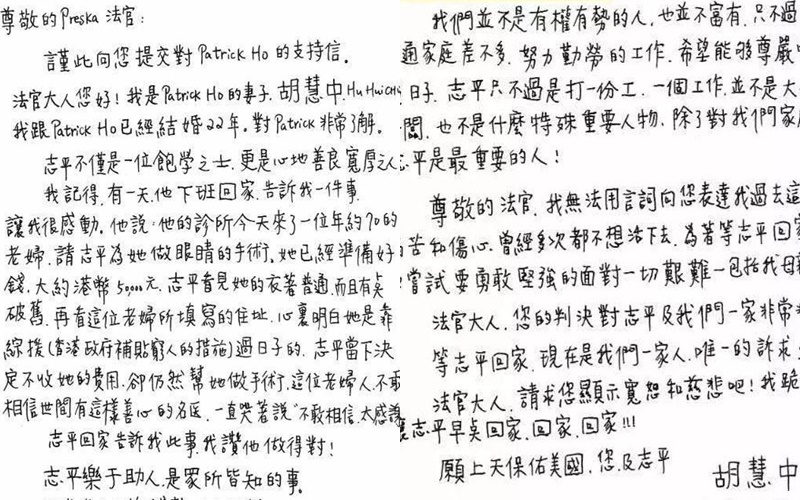 尊敬的Preska 法官：
謹此向您提交對Patrick Ho 的支持信。
法官大人您好！我是Patrick Ho 的妻子、胡慧中、Hu Hui
我跟Patrick Ho已經結婚22年。對Patrick 非常了解。
志平不僅是一位飽學之士、更是心地善良寬厚之人
我記得、有一天、他下班回家、告訴我一件事、
讓我很感動。他說：他的診所今天來了一位年約70的
老婦、請志平為她做眼睛的手術、她已經準備好
錢、大約港幣50000元、志平看見她的衣著普通、而且有臭
破舊、再看這位老婦所填寫的住址、心裏明白她是靠
綜援(香港政府補貼窮人的措施)過日子的、志平當下決
定不收她的費用、卻仍然幫她做手術、這位老婦人、不敢
相信世間有這樣善心的名医、一直哭著說"不敢相信、太感謝
志平回家告訴我此事、我讚他做得對！
志平樂于助人、是眾所皆知的事。
我們並不是有權有勢的人、也並不富有、只不過
通家庭差不多、努力勤勞的工作、希望能够尊嚴
日子、志平只不過是打一份工、一個工作、並不是大
闆、也不是什麼特殊重要人物、除了對我們家
平是最重要的人！
尊敬的法官、我無法用言詞向您表達我過去這
苦和傷心、曾經多次都不想活下去、為著等志平回家
嘗試要勇敢堅強的面對一切艱難一包括我母
法官大人、您的判決對志平及我們一家非常
等志平回家、現在是我們一家人、唯一的訴求
法官大人、請求您顯示寬恕和慈悲吧！我跪
志平早臭回家、回家、回家!!!
願上天保佑美國、您、及志平
胡慧中